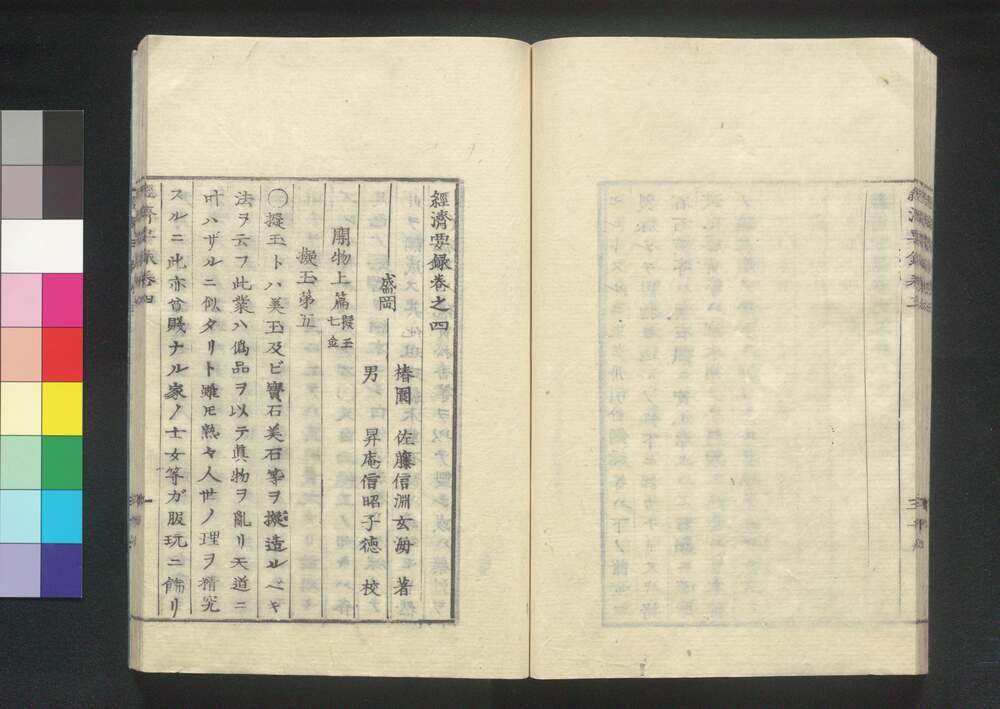 經濟要録卷之四
椿園 佐藤信淵玄海 著
盛岡
男 昇庵信昭子德 校
開物上篇 擬玉 七金
擬玉第五
〇擬玉トハ美玉及ビ寶石美石等ヲ擬造ルベキ
法ヲ云フ此業ハ僞品ヲ以テ眞物ヲ亂リ天道ニ
叶ハザルニ似タリト雖モ熟々人世ノ理ヲ精究
スルニ此亦曾賤ナル家ノ士女等ガ服玩ニ飾リ